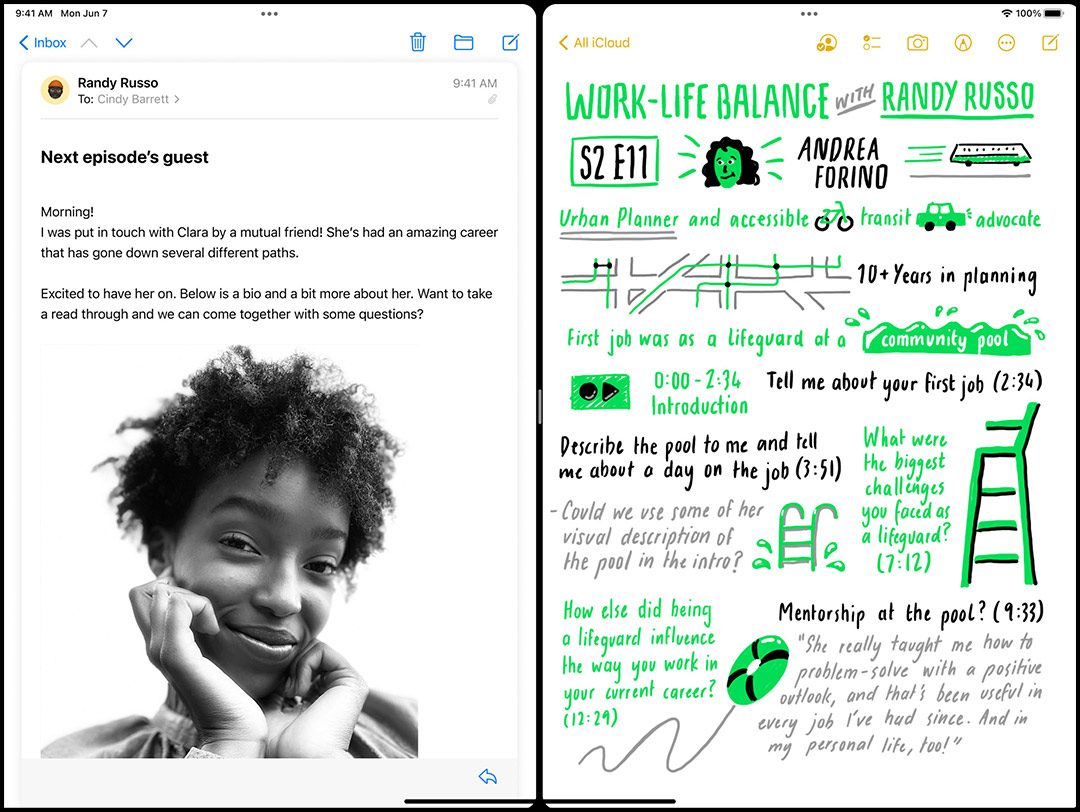 9:41 AM Mon Jun 7
Inbox
Randy Russo
9:41 AM
To: Cindy Barrett
Next episode’s guest
Morning!
I was put in touch with Clara by a mutual friend! She’s had an amazing career
that has gone down several different paths.
Excited to have her on. Below is a bio and a bit more about her. Want to take
a read through and we can come together with some questions?
100%
All iCloud
WORK-LIFE BALANCE WITH RANDY RUSSO
S2 E11
ANDREA
FORINO
Urban Planner and accessible transit advocate
10+ Years in planning
First job was as a lifeguard at a community pool
0:00 - 2:34
Introduction
Tell me about your first job (2:34)
Describe the pool to me and tell
me about a day on the job (3:51)
- Could we use some of her
visual description of
the pool in the intro?
What were
the biggest
challenges
you faced as
a lifeguard?
(7:12)
How else did being
a lifeguard influence
the way you work in
your current career?
(12:29)
Mentorship at the pool? (9:33)
"She really taught me how to
problem-solve with a positive
outlook, and that's been useful in
every job I've had since. And in
my personal life, too!"